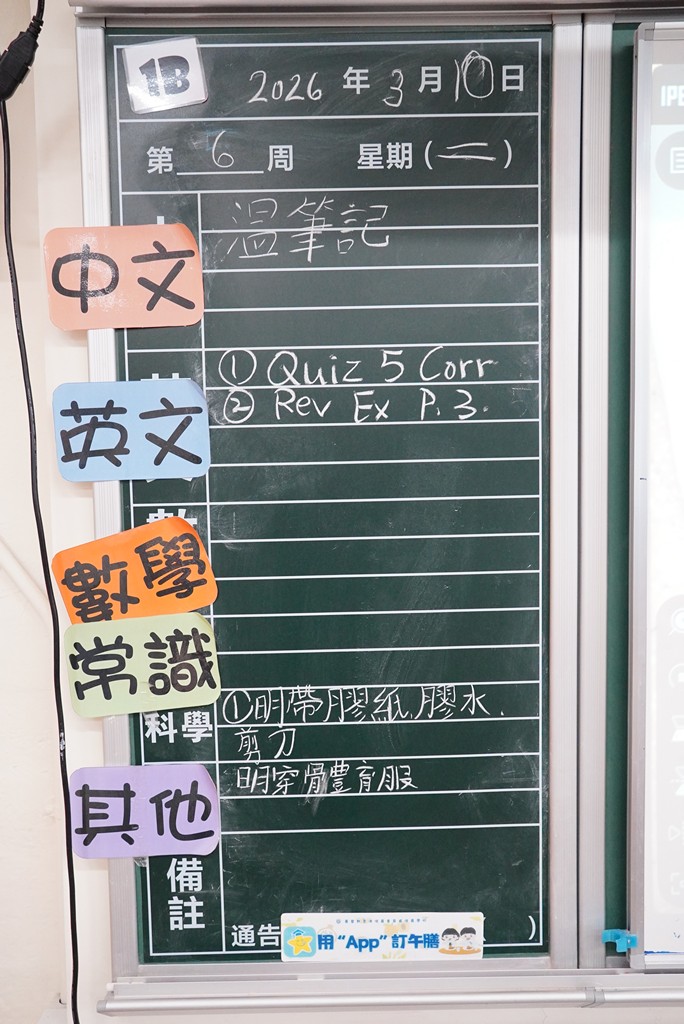 1B
2026 年 3 月 10 日
第 6 周 星期 (二)
中文
溫筆記
英文
① Quiz 5 Corr
② Rev Ex P.3.
數學
常識
科學
①明帶膠紙, 膠水,
剪刀
明穿體育服
其他
備註
通告
)
用“App”訂午膳
IPE